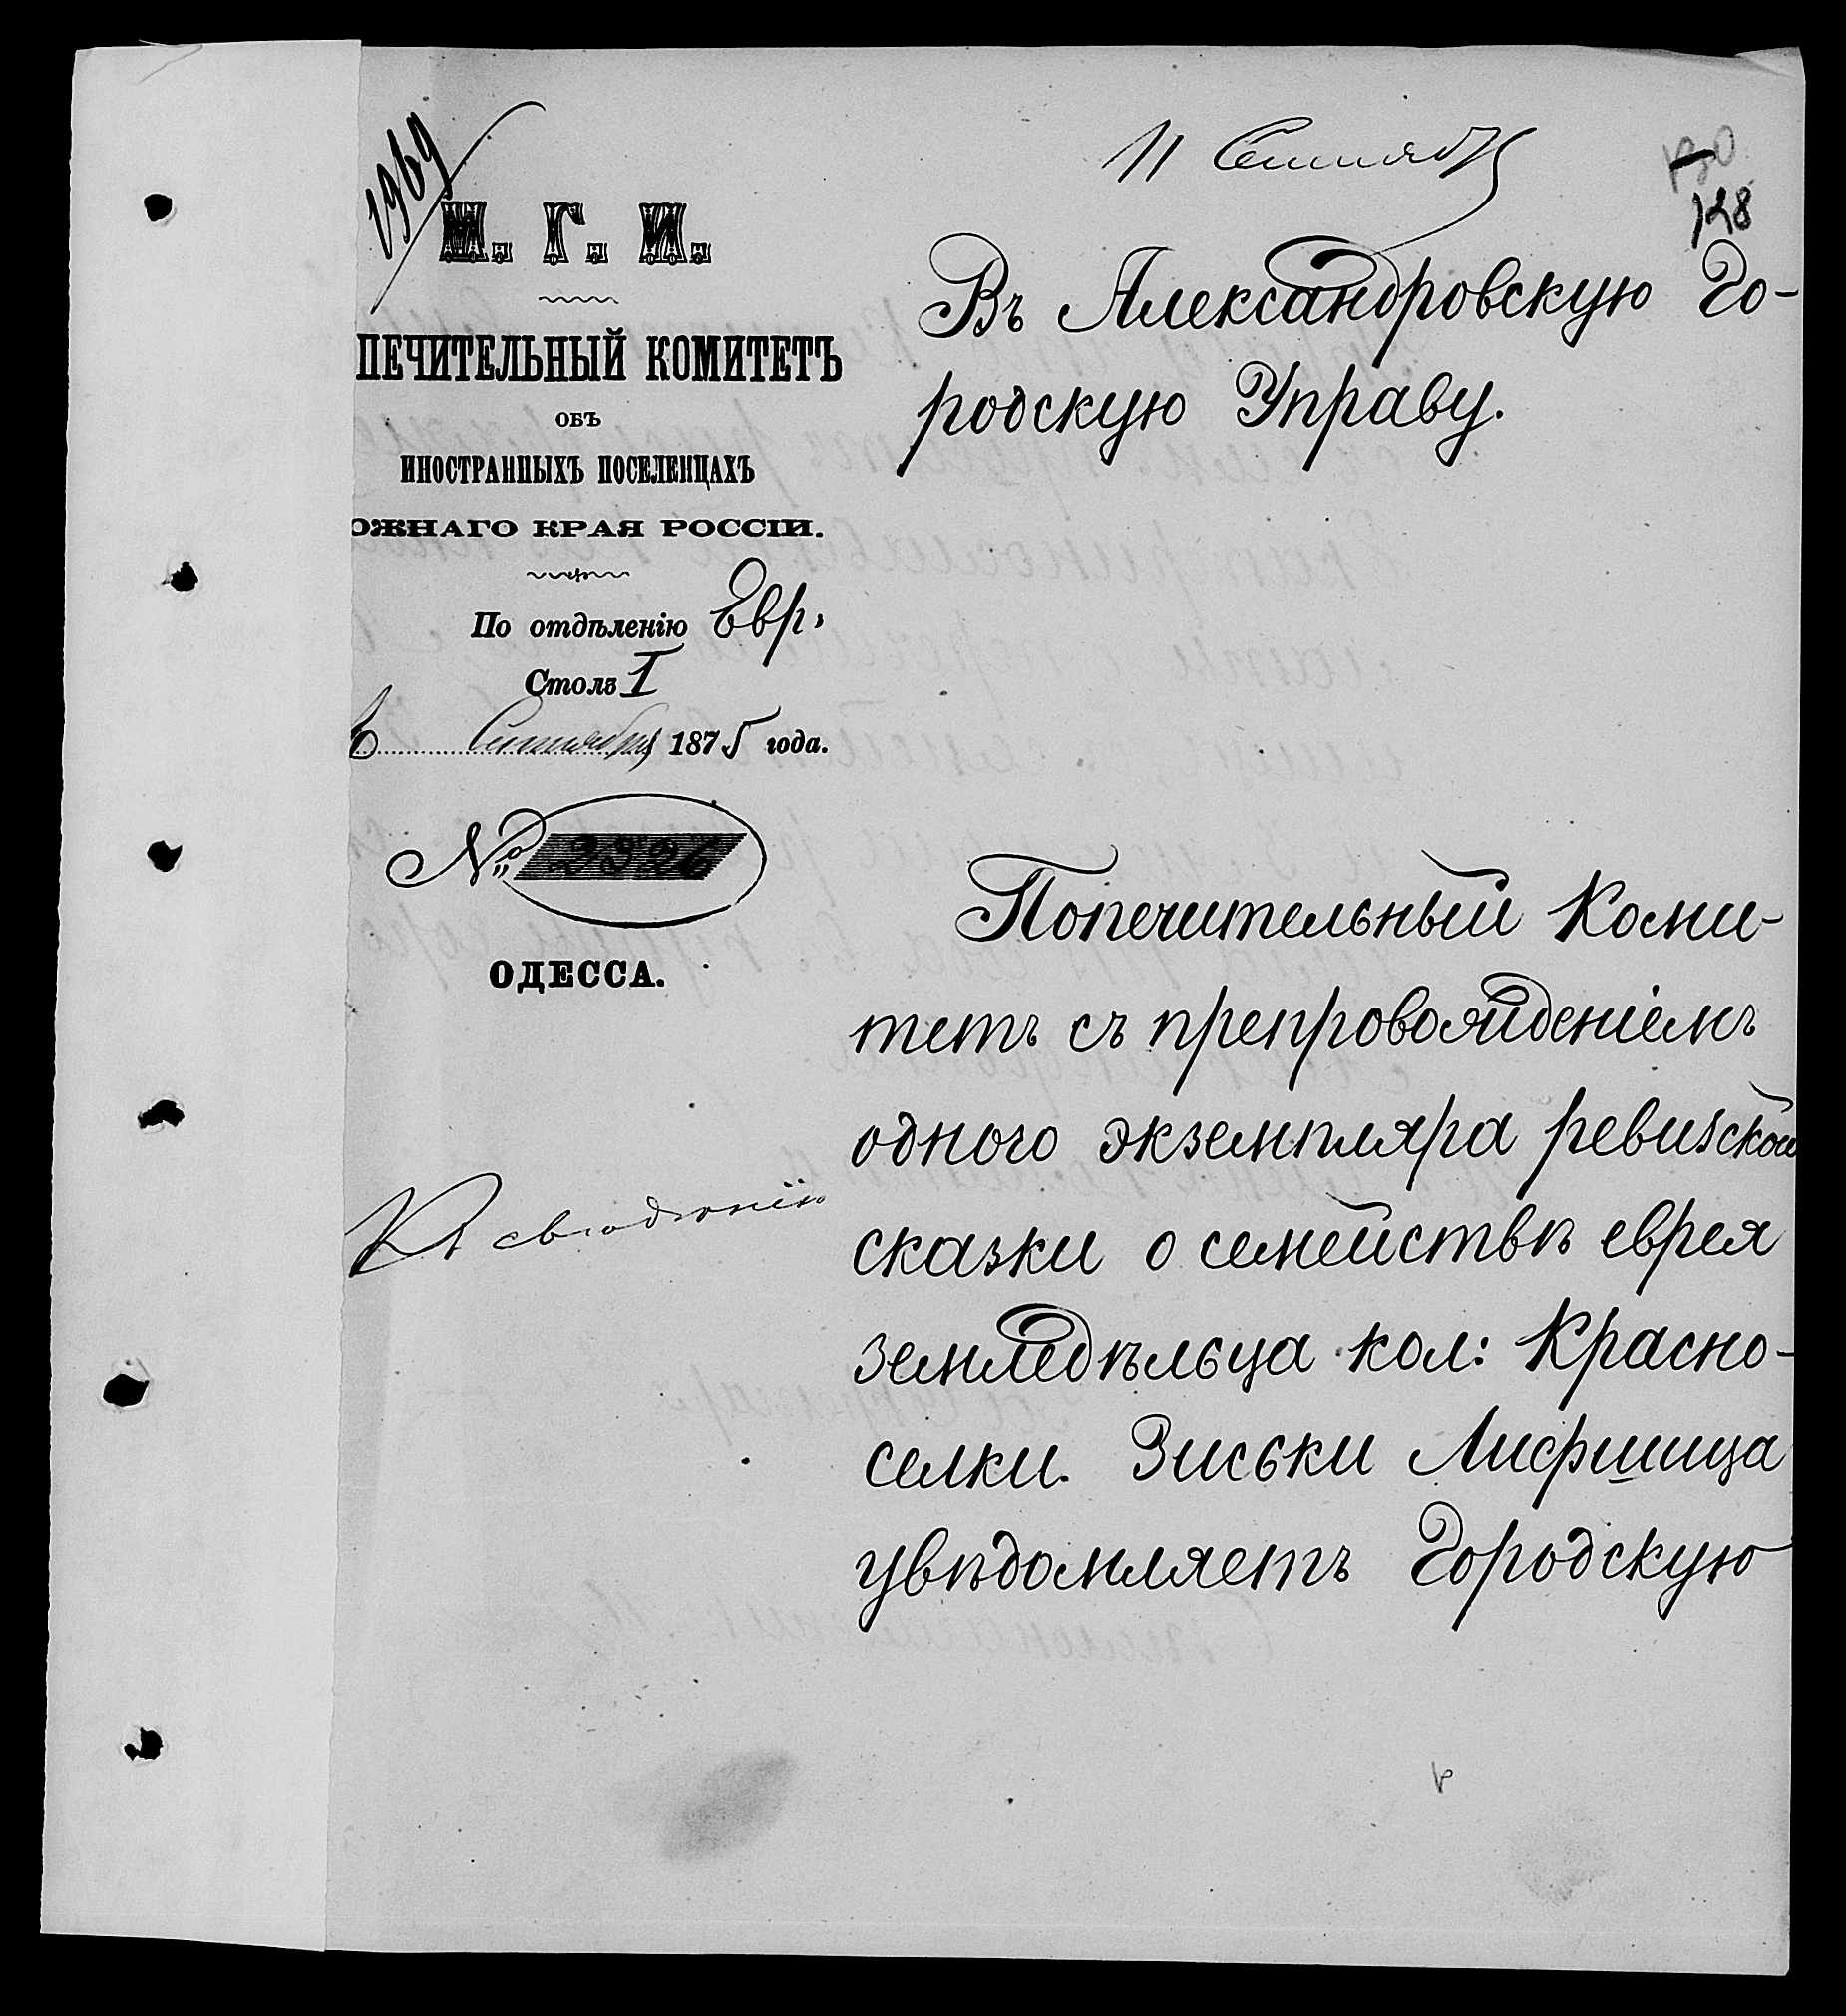 1969
11 Сентября
130
128
М. Г. И.
ПЕЧИТЕЛЬНЫЙ КОМИТЕТЪ
ОБЪ
ИНОСТРАННЫХЪ ПОСЕЛЕНЦАХЪ
ЮЖНАГО КРАЯ РОССІИ.
По отдѣленію Евр.
Столъ I
6 Сентября 1875 года.
№ 2326
ОДЕССА.
Къ свѣдѣнію
Въ Александровскую Го-
родскую Управу.
Попечительный Коми-
тетъ съ препровожденіемъ
одного экземпляра ревизской
сказки о семействѣ еврея
земледѣльца кол: Красно-
селки Зиськи Лифшица
увѣдомляетъ Городскую